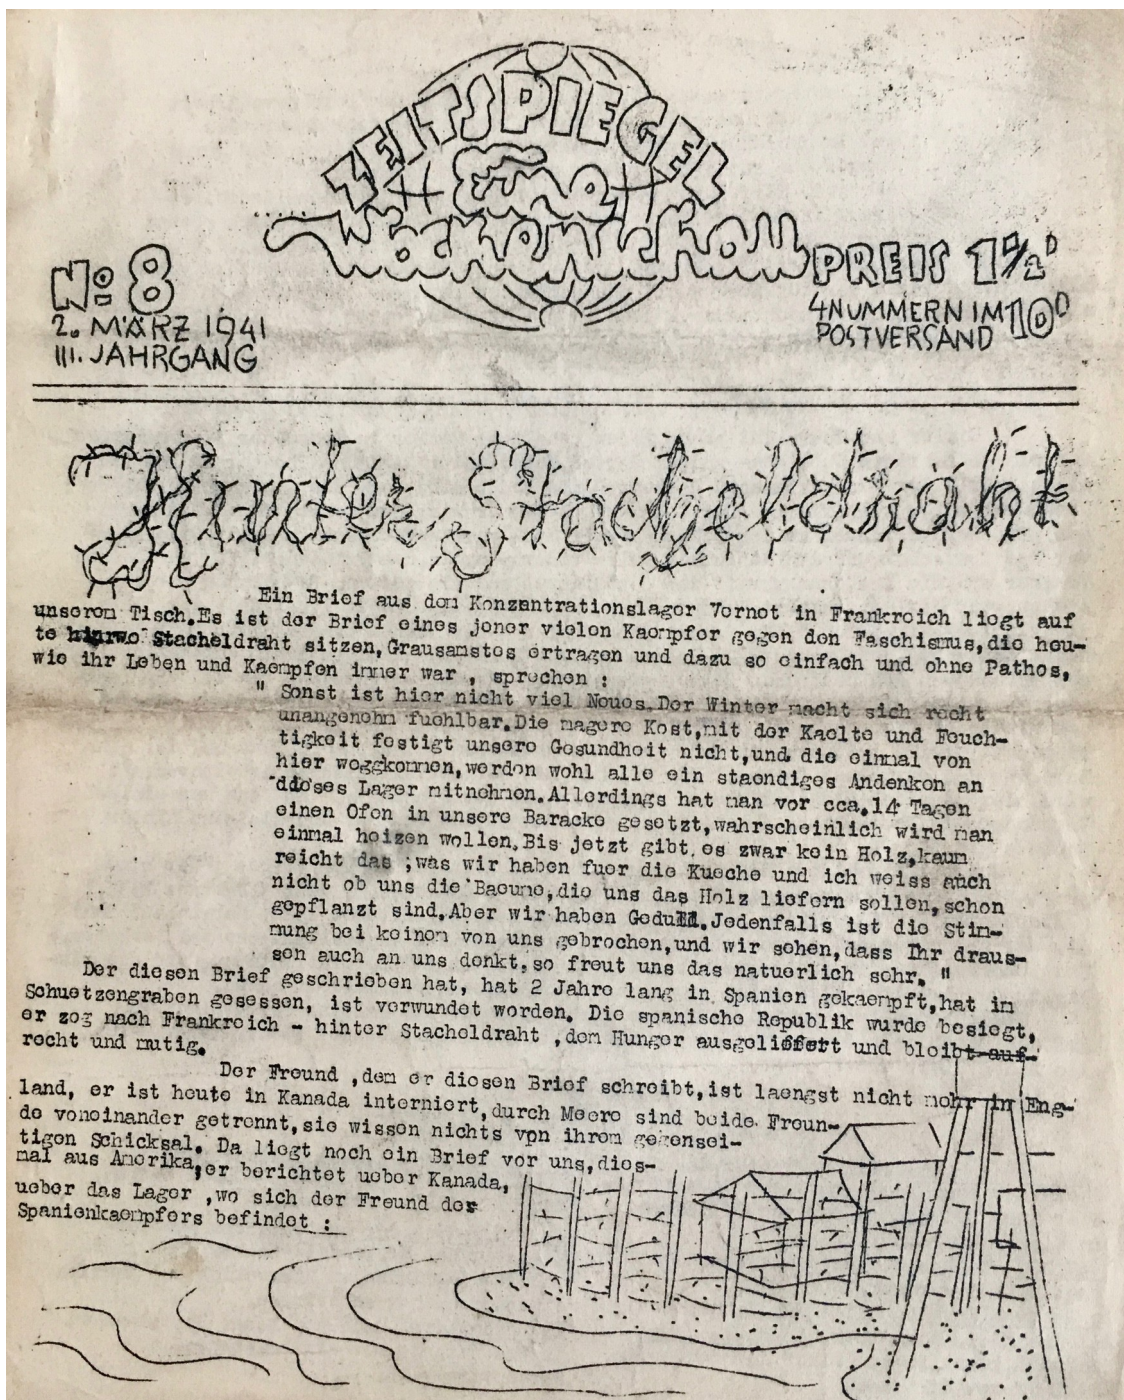 ZEITSPIEGEL
Eine
Wochenschau
No 8
2. MÄRZ 1941
III. JAHRGANG
PREIS 1 1/2 D
4 NUMMERN IM
POSTVERSAND 10 D
Hinter Stacheldraht
Ein Brief aus dem Konzentrationslager Vernet in Frankreich liegt auf
unserem Tisch.Es ist der Brief eines jener vielen Kaempfer gegen den Faschismus,die heu-
te Stacheldraht sitzen,Grausamstes ertragen und dazu so einfach und ohne Pathos,
wie ihr Leben und Kaempfen immer war , sprechen :
" Sonst ist hier nicht viel Neues.Der Winter macht sich recht
unangenehm fuehlbar.Die magere Kost,mit der Kaelte und Feuch-
tigkeit festigt unsere Gesundheit nicht,und die einmal von
hier weggkommen,werden wohl alle ein staendiges Andenken an
dieses Lager mitnehmen.Allerdings hat man vor cca.14 Tagen
einen Ofen in unsere Baracke gesetzt,wahrscheinlich wird man
einmal heizen wollen.Bis jetzt gibt es zwar kein Holz,kaum
reicht das ;was wir haben fuer die Kueche und ich weiss auch
nicht ob uns die Baeume,die uns das Holz liefern sollen,schon
gepflanzt sind.Aber wir haben Geduld.Jedenfalls ist die Stim-
mung bei keinem von uns gebrochen,und wir sehen,dass Ihr draus-
sen auch an uns denkt,so freut uns das natuerlich sehr. "
Der diesen Brief geschrieben hat, hat 2 Jahre lang in Spanien gekaempft,hat im
Schuetzengraben gesessen, ist verwundet worden. Die spanische Republik wurde besiegt,
er zog nach Frankreich - hinter Stacheldraht ,dem Hunger ausgeliefert und bleibt auf-
recht und mutig.
Der Freund ,dem er diesen Brief schreibt,ist laengst nicht mehr in Eng-
land, er ist heute in Kanada interniert,durch Meere sind beide Freun-
de voneinander getrennt,sie wissen nichts von ihrem gegensei-
tigen Schicksal. Da liegt noch ein Brief vor uns,dies-
mal aus Amerika,er berichtet ueber Kanada,
ueber das Lager ,wo sich der Freund des
Spanienkaempfers befindet :